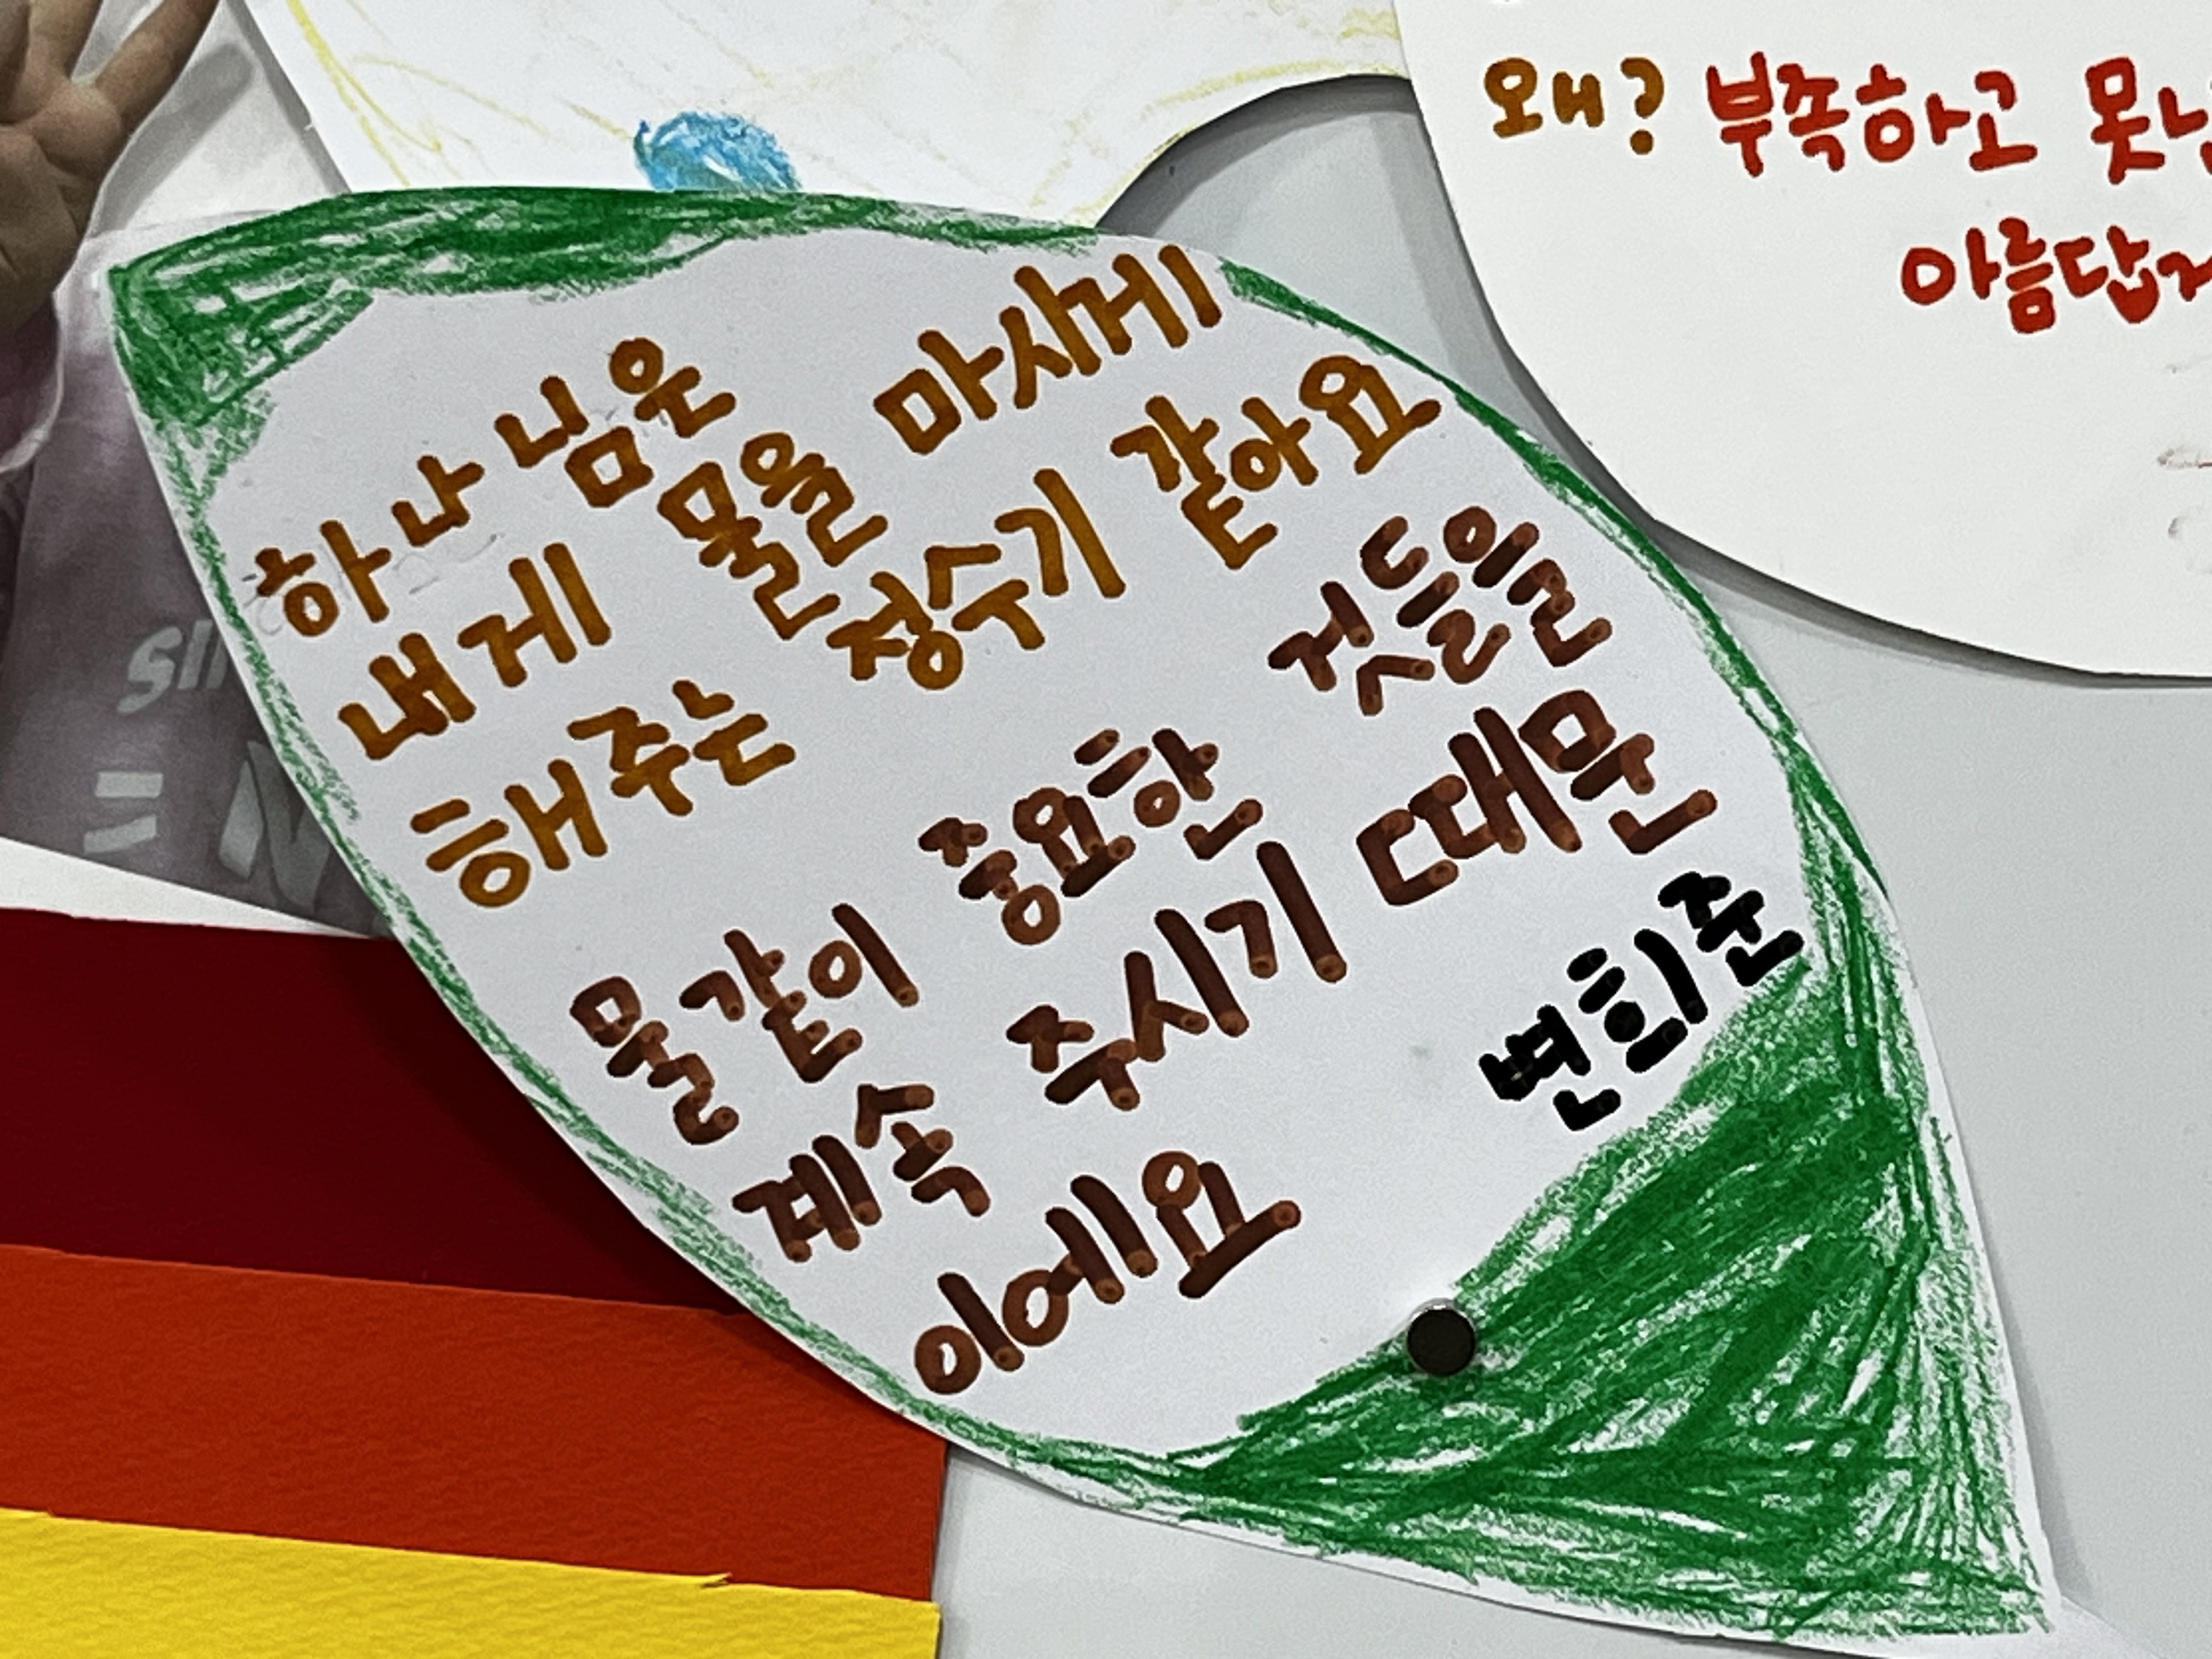 왜? 부족하고
하나님은
내게 물을 마시게
해주는 정수기 같아요
물같이 중요한 것들을
계속 주시기 때문
이에요
변희준